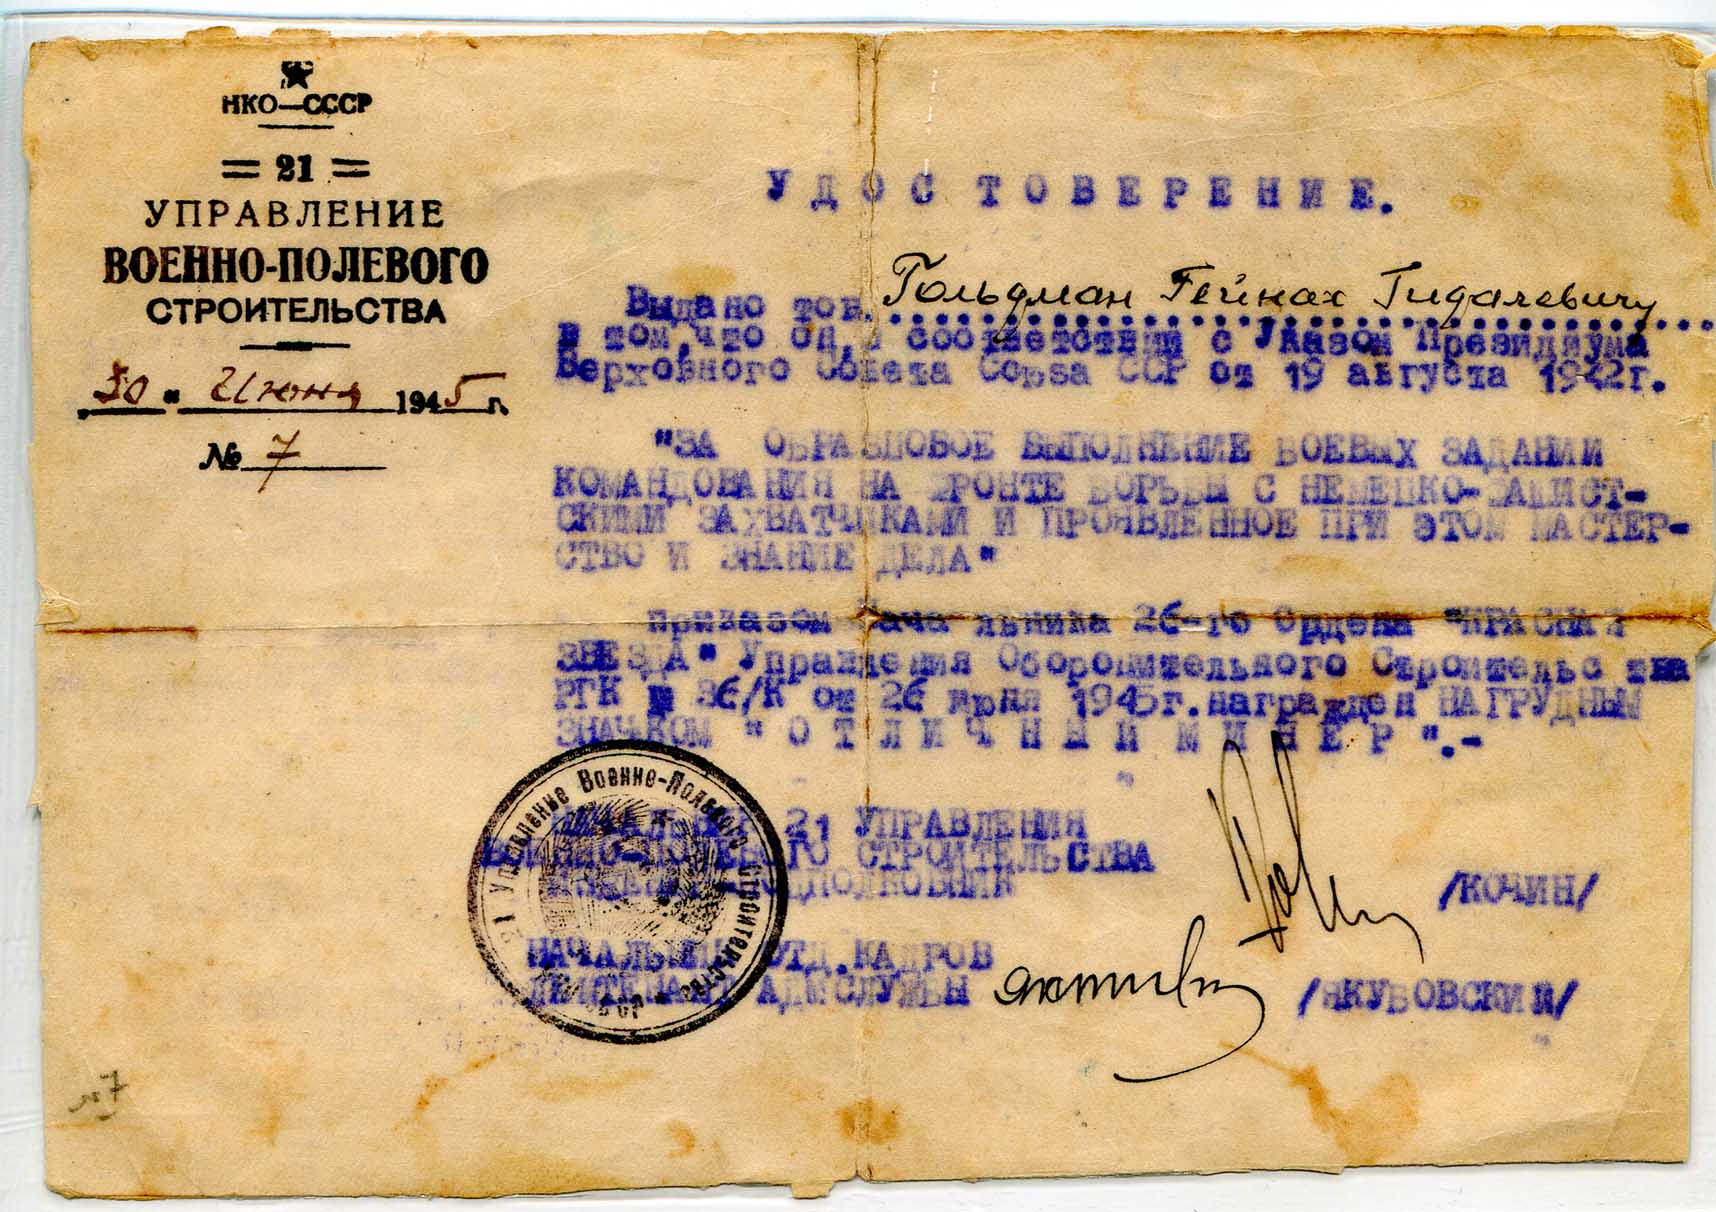 НКО—СССР
= 21 =
УПРАВЛЕНИЕ
ВОЕННО-ПОЛЕВОГО
СТРОИТЕЛЬСТВА
„30 “ Июня 1945 г.
№ 7
УДОСТОВЕРЕНИЕ.
Выдано тов. Гольдман Гейнах Гидалевичу
в том, что он, в соответствии с Указом Президиума
Верховного Совета Союза ССР от 19 августа 1942г.
"ЗА ОБРАЗЦОВОЕ ВЫПОЛНЕНИЕ БОЕВЫХ ЗАДАНИЙ
КОМАНДОВАНИЯ НА ФРОНТЕ БОРЬБЫ С НЕМЕЦКО-ФАШИСТ-
СКИМИ ЗАХВАТЧИКАМИ И ПРОЯВЛЕННОЕ ПРИ ЭТОМ МАСТЕР-
СТВО И ЗНАНИЕ ДЕЛА"
Приказом Начальника 26-го Ордена "КРАСНАЯ
ЗВЕЗДА" Управления Оборонительного Строительства
РГК № 36/К от 26 июня 1945г. награжден НАГРУДНЫМ
ЗНАЧКОМ "ОТЛИЧНЫЙ МИНЕР".-
НАЧАЛЬНИК 21 УПРАВЛЕНИЯ
ВОЕННО-ПОЛЕВОГО СТРОИТЕЛЬСТВА
ПОДПОЛКОВНИК /КОЧИН/
НАЧАЛЬНИК ОТД.КАДРОВ
ЛЕЙТЕНАНТ АДМСЛУЖБЫ /ЯКУБОВСКИЙ/
21 Управление Военно-Полевого Строительства